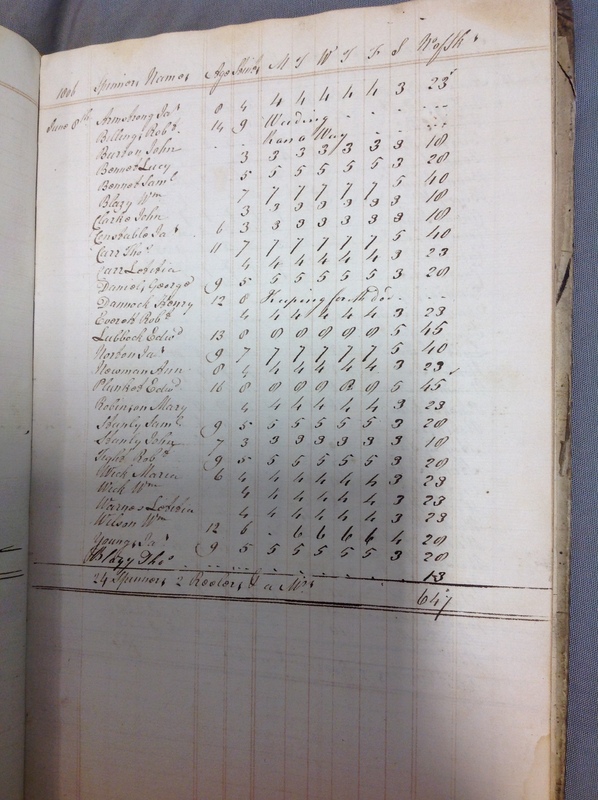 1806 Spinners Names Age Stints M T W T F S No of Sk s
June 8th Armstrong Jas 8 4 4 4 4 4 4 3 23
Billing Robt 14 9 Weeding - - - ---
Burton John - - Ran a Way - - - ---
Bennet Lucy 3 3 3 3 3 3 3 18
Bennet Saml 5 5 5 5 5 5 3 28
Blazy Wm 7 7 7 7 7 7 5 40
Clarke John 3 3 3 3 3 3 3 18
Constable Jas 6 3 3 3 3 3 3 3 18
Carr Thos 11 7 7 7 7 7 7 5 40
Carr Letitia 4 4 4 4 4 4 3 23
Daniels George 9 5 5 5 5 5 5 3 28
Dannock Henry 12 8 Keeping for - ---
Everet Robt 4 4 4 4 4 4 3 23
Lubbock Edwd 13 8 8 8 8 8 8 5 45
Norton Jas 9 7 7 7 7 7 7 5 40
Newman Ann 8 4 4 4 4 4 4 3 23
Plunket Edwd 16 8 8 8 8 8 8 5 45
Robinson Mary 4 4 4 4 4 4 3 23
Stanly Saml 9 5 5 5 5 5 5 3 28
Stanly John 7 3 3 3 3 3 3 3 18
Tight Robt 9 5 5 5 5 5 5 3 28
Wick Maria 6 4 4 4 4 4 4 3 23
Wick Wm 4 4 4 4 4 4 3 23
Warnes Letitia 4 4 4 4 4 4 3 23
Wilson Wm 12 6 - 6 6 6 6 4 28
Young Jas 9 5 5 5 5 5 5 3 28
Blazy Thos 13
24 Spinners 2 Reelers & a Mrs
647